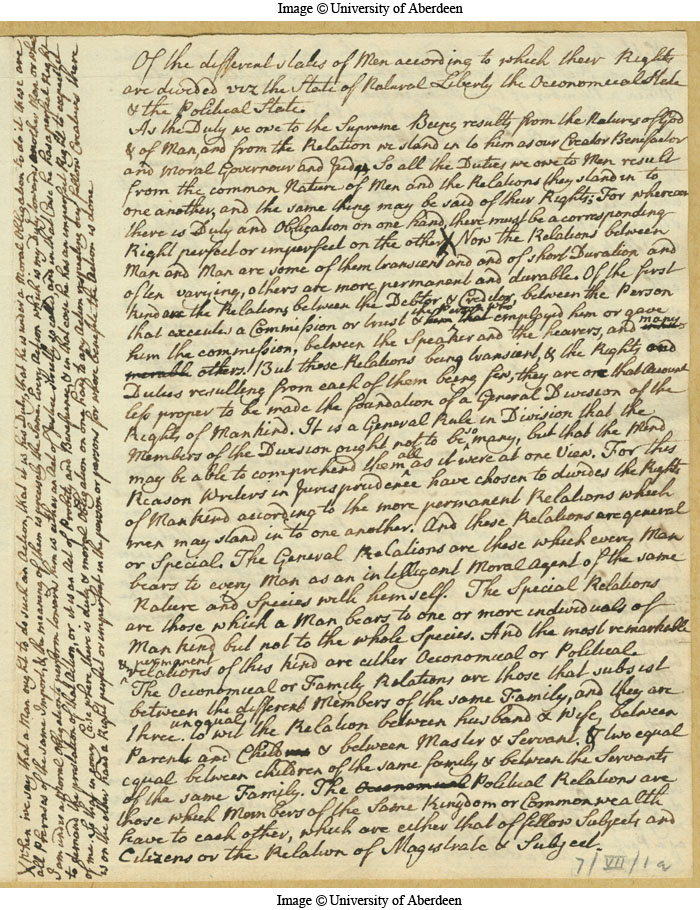 Image © University of Aberdeen
Of the different states of Men according to which their Rights
are divided viz the State of Natural Liberty the Oeconomical State
& the Political State.
As the Duty we owe to the Supreme Being results from the Natures of God
& of Man, and from the Relation we stand in to him as our Creator Benefactor
and Moral Governour and Judge, So all the Duties we owe to Men result
from the common Nature of Men and the Relations they stand in to
one another, and the same thing may be said of their Rights; For wherever
there is Duty and Obligation on one hand, there must be a corresponding
Right perfect or imperfect on the other X Now the Relations between
Man and Man are some of them transient and and of short Duration and
often varying, others are more permanent and durable. Of the first
kind are the Relations between the Debtor & Creditor, between the Person
that executes a Commission or trust & the Person who him that employed him or gave
him the commission, between the Speaker and the hearers, and many
others. But those Relations being transient, & the Rights and
Duties resulting from each of them being few, they are on that Account
less proper to be made the foundation of a General Division of the
Rights of Mankind. It is a General Rule in Division that the
Members of the Division ought not to be so many, but that the Mind
may be able to comprehend them all as it were at one View. For this
Reason Writers in Jurisprudence have chosen to divide the Rights
of Mankind according to the more permanent Relations which
men may stand in to one another. And these Relations are general
or Special. The General Relations are those which every Man
bears to every Man as an intelligent Moral Agent of the same
Nature and Species with himself. The Special Relations
are those which a Man bears to one or more individuals of
Mankind but not to the whole Species. And the most remarkable
& permanent relations of this kind are either Oeconomical or Political
The Oeconomical or Family Relations are those that subsist
between the different Members of the same Family, and they are
Three unequal, to wit the Relation between husband & Wife, between
Parents and Children & between Master & Servant, & two equal
equal between children of the same family & between the Servants
of the same Family. The Oeconomical Political Relations are
those which Members of the same Kingdom or Commonwealth
have to each other, which are either that of fellow Subjects and
Citizens or the Relation of Magistrate & Subject.
7/VII/1a
X When we say that a Man ought to do such an Action, that it is his Duty, that he is under a Moral Obligation to do it these are
all Phrases of the same Import, & the meaning of them is precisely the same. Every Action which is my Duty towards another Man or which
I am under a Moral Obligation to perform towards him is either an Act of Justice strictly so called, and in that Case he has a perfect Right
to demand the prestation of the Action, or it is an Act of and Beneficence & in that case he has an imperfect Right to expect it
of me. So that in every Case where there is duty & moral Obligation on one hand to any Action respecting our fellow Creatures there
is on the other hand a Right perfect or imperfect in the person or persons for whose benefit the Action is done
Image © University of Aberdeen